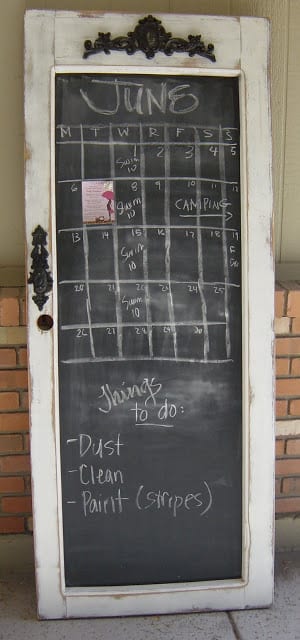 JUNE
M T W R F S S
1 2 3 4 5
Swim 10
6 8 9 10 11 12
Swim 10
CAMPING
13 14 15 16 17 18 19
Swim 10
20 21 22 23 24 25
Swim 10
28 29 30
Things
to do:
-Dust
-Clean
-Paint (stripes)